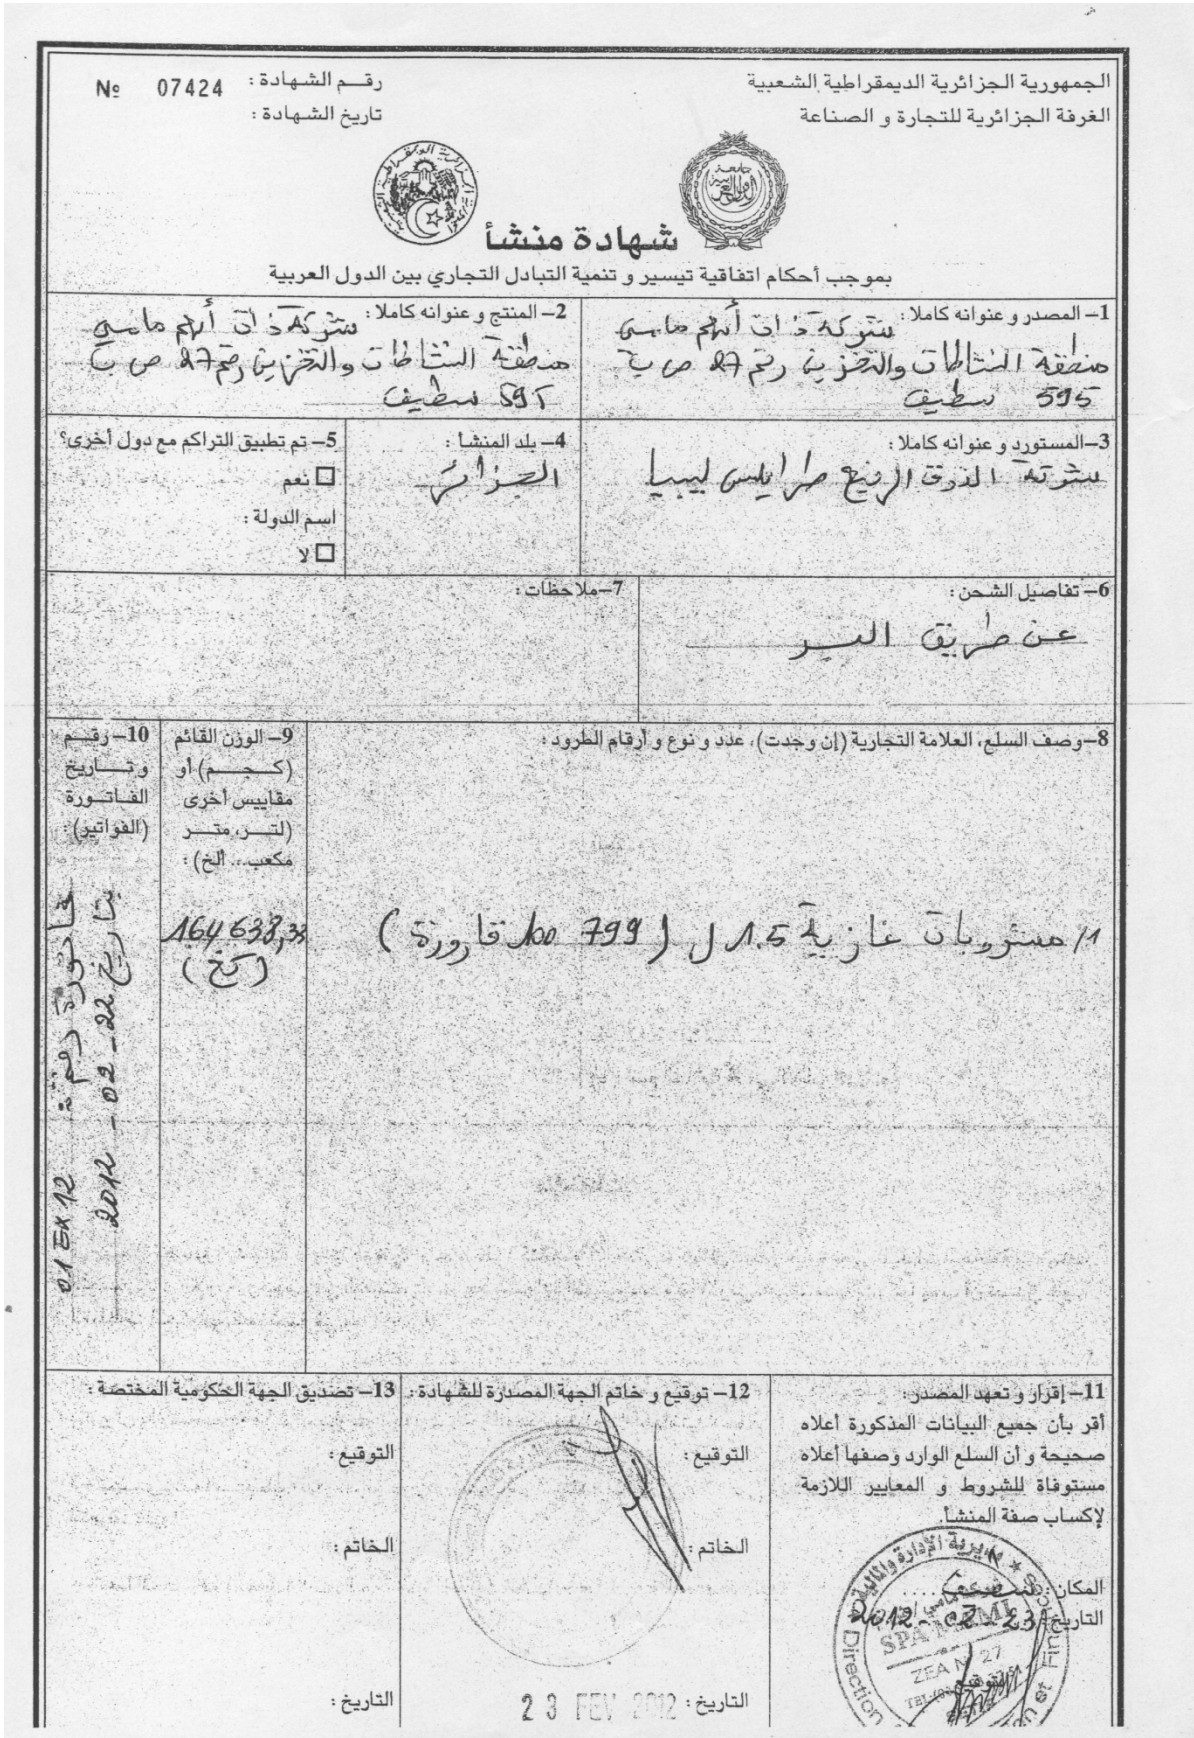 الجمهورية الجزائرية الديمقراطية الشعبية
الغرفة الجزائرية للتجارة و الصناعة
رقم الشهادة : 07424 №
تاريخ الشهادة :
شهادة منشأ
بموجب أحكام اتفاقية تيسير و تنمية التبادل التجاري بين الدول العربية
1- المصدر و عنوانه كاملا : شركة ذات أسهم مامي
منطقة النشاطات والتخزين رقم 27 ص ب
595 سطيف
2- المنتج و عنوانه كاملا : شركة ذات أسهم مامي
منطقة النشاطات والتخزين رقم 27 ص ب
595 سطيف
3-المستورد و عنوانه كاملا :
شركة الذوق الرفيع طرابلس ليبيا
4- بلد المنشأ :
الجزائر
5- تم تطبيق التراكم مع دول أخرى؟
نعم
اسم الدولة :
لا
6- تفاصيل الشحن :
عن طريق البر
7-ملاحظات :
8-وصف السلع، العلامة التجارية (إن وجدت)، عدد و نوع و أرقام الطرود :
1/ مشروبات غازية 1.5 ل (799 100 قارورة)
9- الوزن القائم
(كجم) أو
مقاييس أخرى
(لتر، متر
مكعب... ألخ) :
164 638,33
(كغ)
10- رقم
و تاريخ
الفاتورة
(الفواتير) :
فاتورة رقم 01 EX 12
بتاريخ 22-02-2012
11- إقرار و تعهد المصدر :
أقر بأن جميع البيانات المذكورة أعلاه
صحيحة و أن السلع الوارد وصفها أعلاه
مستوفاة للشروط و المعايير اللازمة
لإكساب صفة المنشأ.
المكان : سطيف
التاريخ : 2012-02-23
التوقيع
مديرية الإدارة والمالية
SPA MAMI
ZEA N° 27
Direction
12- توقيع و خاتم الجهة المصدرة للشهادة :
التوقيع :
الخاتم :
التاريخ : 23 FEV 2012
13- تصديق الجهة الحكومية المختصة :
التوقيع :
الخاتم :
التاريخ :